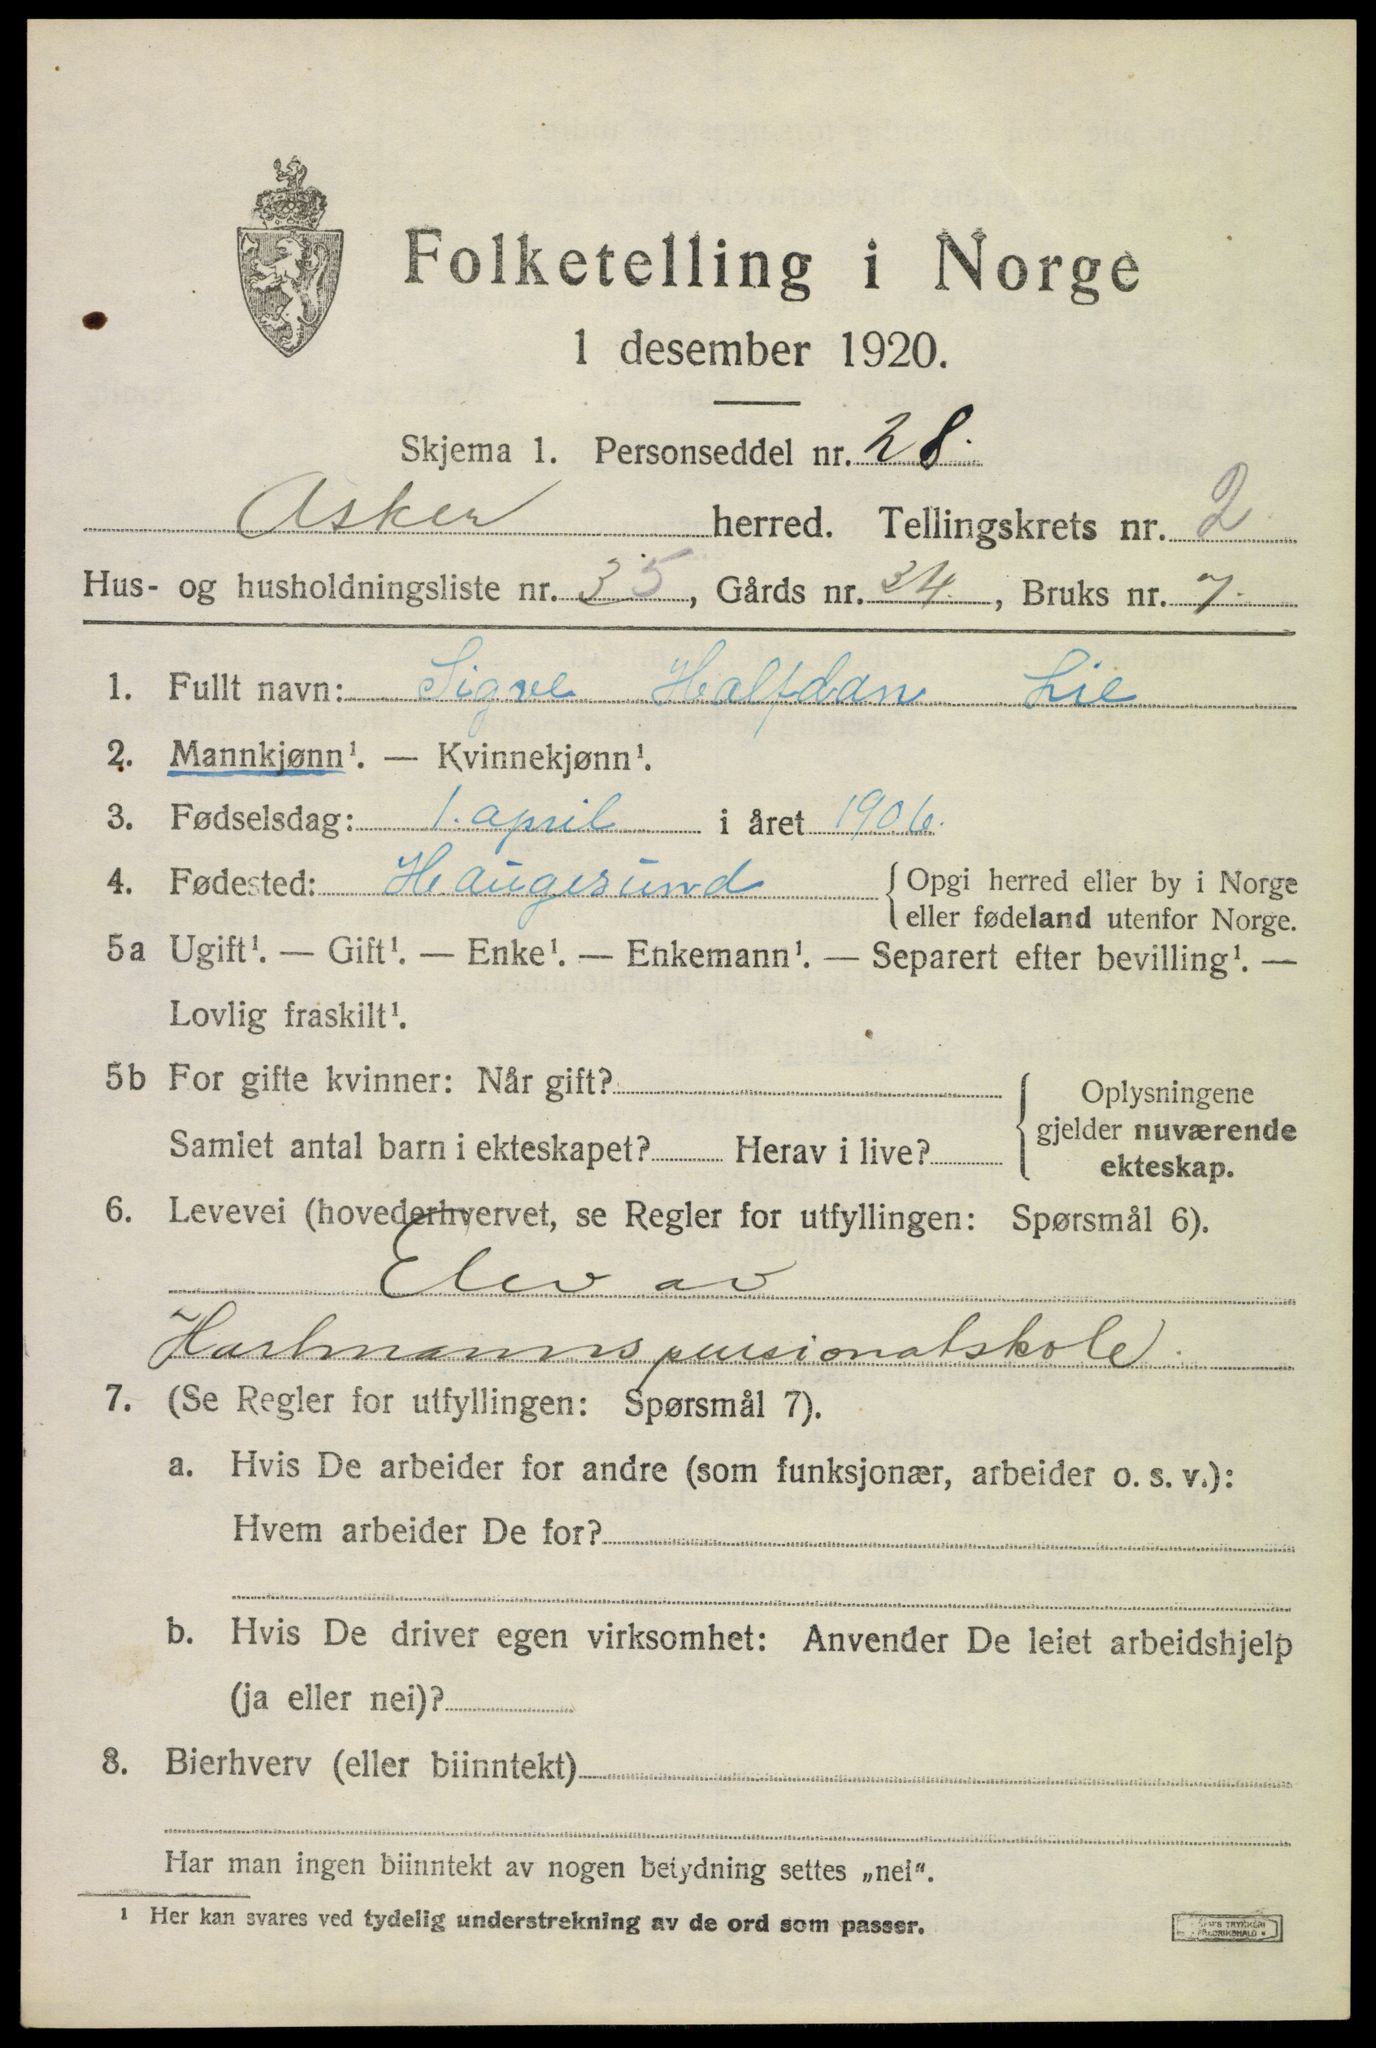 Folketelling i Norge
1 desember 1920.
Skjema 1. Personseddel nr. 28.
Asker herred. Tellingskrets nr. 2
Hus- og husholdningsliste nr. 35, Gårds nr. 34, Bruks nr. 7.
1. Fullt navn: Sigve Halfdan Lie
2. Mannkjønn¹. — Kvinnekjønn¹.
3. Fødselsdag: 1. april i året 1906.
4. Fødested: Haugesund { Opgi herred eller by i Norge
eller fødeland utenfor Norge.
5a Ugift¹. — Gift¹. — Enke¹. — Enkemann¹. — Separert efter bevilling¹. —
Lovlig fraskilt¹.
5b For gifte kvinner: Når gift? { Oplysningene
gjelder nuværende
Samlet antal barn i ekteskapet? Herav i live? ekteskap.
6. Levevei (hovederhvervet, se Regler for utfyllingen: Spørsmål 6).
Elev av
Hartmanns pensionatskole.
7. (Se Regler for utfyllingen: Spørsmål 7).
a. Hvis De arbeider for andre (som funksjonær, arbeider o. s. v.):
Hvem arbeider De for?
b. Hvis De driver egen virksomhet: Anvender De leiet arbeidshjelp
(ja eller nei)?
8. Bierhverv (eller biinntekt)
Har man ingen biinntekt av nogen betydning settes „nei“.
¹ Her kan svares ved tydelig understrekning av de ord som passer.
TRYKKERI
FREDRIKSHALD